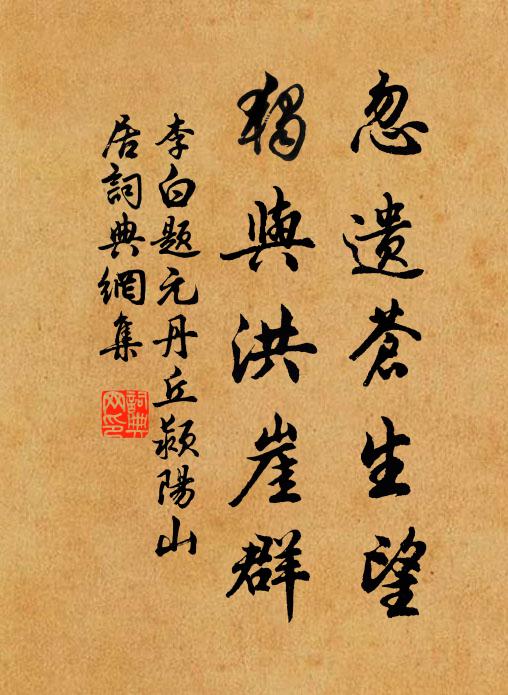 忽遗蒼生望
獨與洪崖群
李白题元丹丘颍陽山
居詞典網集
詞典网印